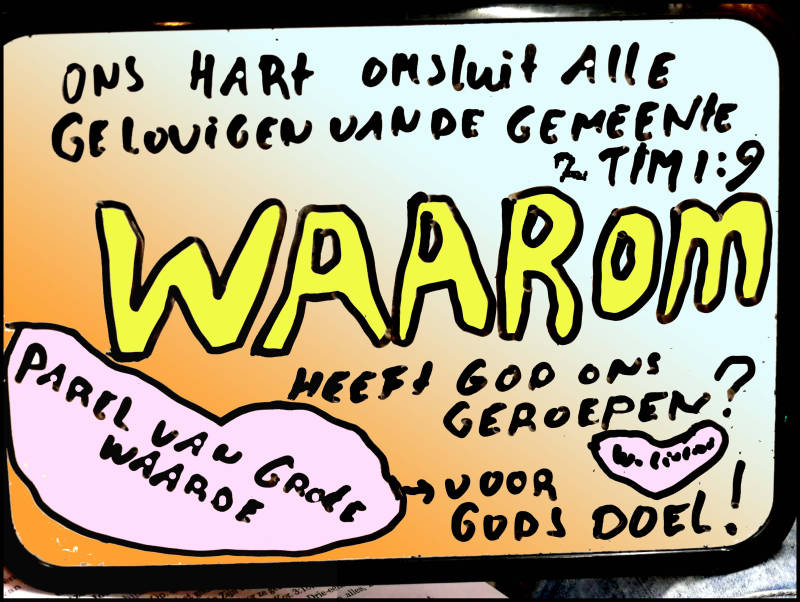 ONS HART OMSLUIT ALLE
GELOVIGEN VAN DE GEMEENTE
2 TIM 1:9
WAAROM
HEEFT GOD ONS
GEROEPEN?
PAREL VAN GROTE
WAARDE
→ VOOR
GODS DOEL!